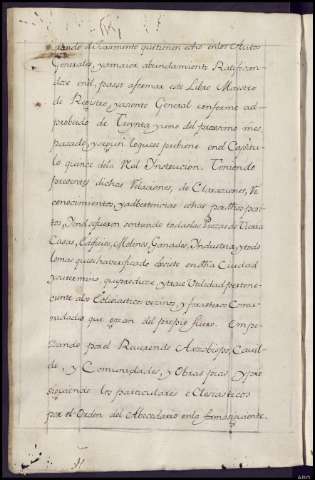 dando el Juramento que tienen echo en los Autos
Generales, y a maior abundamiento Ratifican-
dose en él, pasar a formar este Libro Maestro
de Registro y asiento General conforme al
probeido de Treynta y uno del proximo mes
pasado, y segun lo que se prebiene en el Capitu-
lo quince de la Rl Ynstruccion. Teniendo
presentes dichas Relaciones, de Claraciones, Re
conocimientos, y adbertencias echas por dhos peri-
tos, Yendo fueron sentando todas las Piezas de Tierra
Casas, Edificios, Molinos, Ganados, Yndustria, y todo
lo mas que se ha verificado de este en dha Ciudad
y su termino, que produce, y trae Utilidad pertene-
ciente a los Eclesiasticos vezinos, y forasteros Comu-
nidades que gozan del propio fuero. Empe-
zando por el Reverendo Arzobispo, Cavil-
do, y Comunidades, y Obras pias y pro
siguiendo los particulares Eclesiasticos
por el Orden del Abecedario en la forma siguiente.